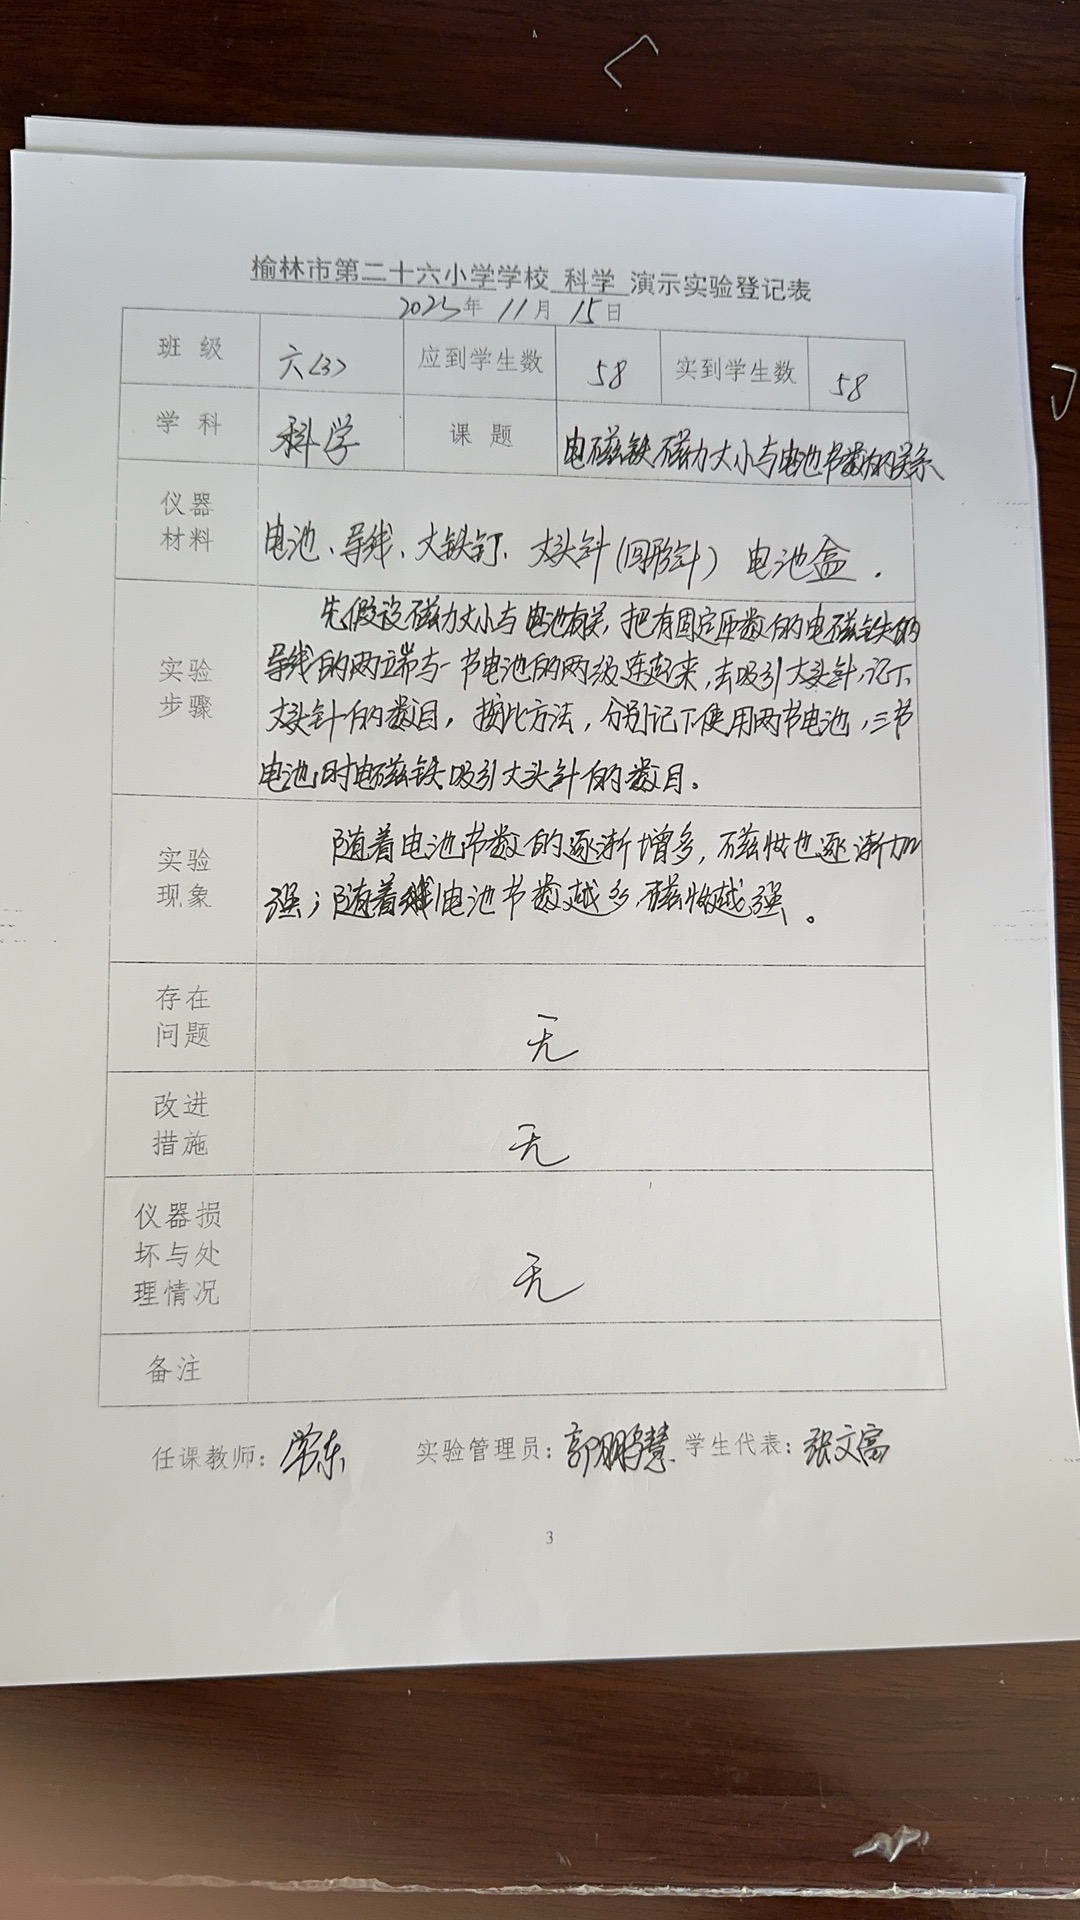 榆林市第二十六小学学校 科学 演示实验登记表
2023年 11月 15日
班级 六〈3〉 应到学生数 58 实到学生数 58
学科 科学 课题 电磁铁磁力大小与电池节数的关系
仪器
材料
电池、导线、大铁钉、大头针(回形针) 电池盒.
实验
步骤
先假设磁力大小与电池有关,把有固定匝数的电磁铁的
导线的两端与一节电池的两级连起来,去吸引大头针,记下
大头针的数目,按此方法,分别记下使用两节电池,三节
电池时电磁铁吸引大头针的数目。
实验
现象
随着电池节数的逐渐增多,磁性也逐渐加
强;随着电池节数越多,磁性越强。
存在
问题
无
改进
措施
无
仪器损
坏与处
理情况
无
备注
任课教师: 实验管理员: 郭鹏慧 学生代表: 张文富
3